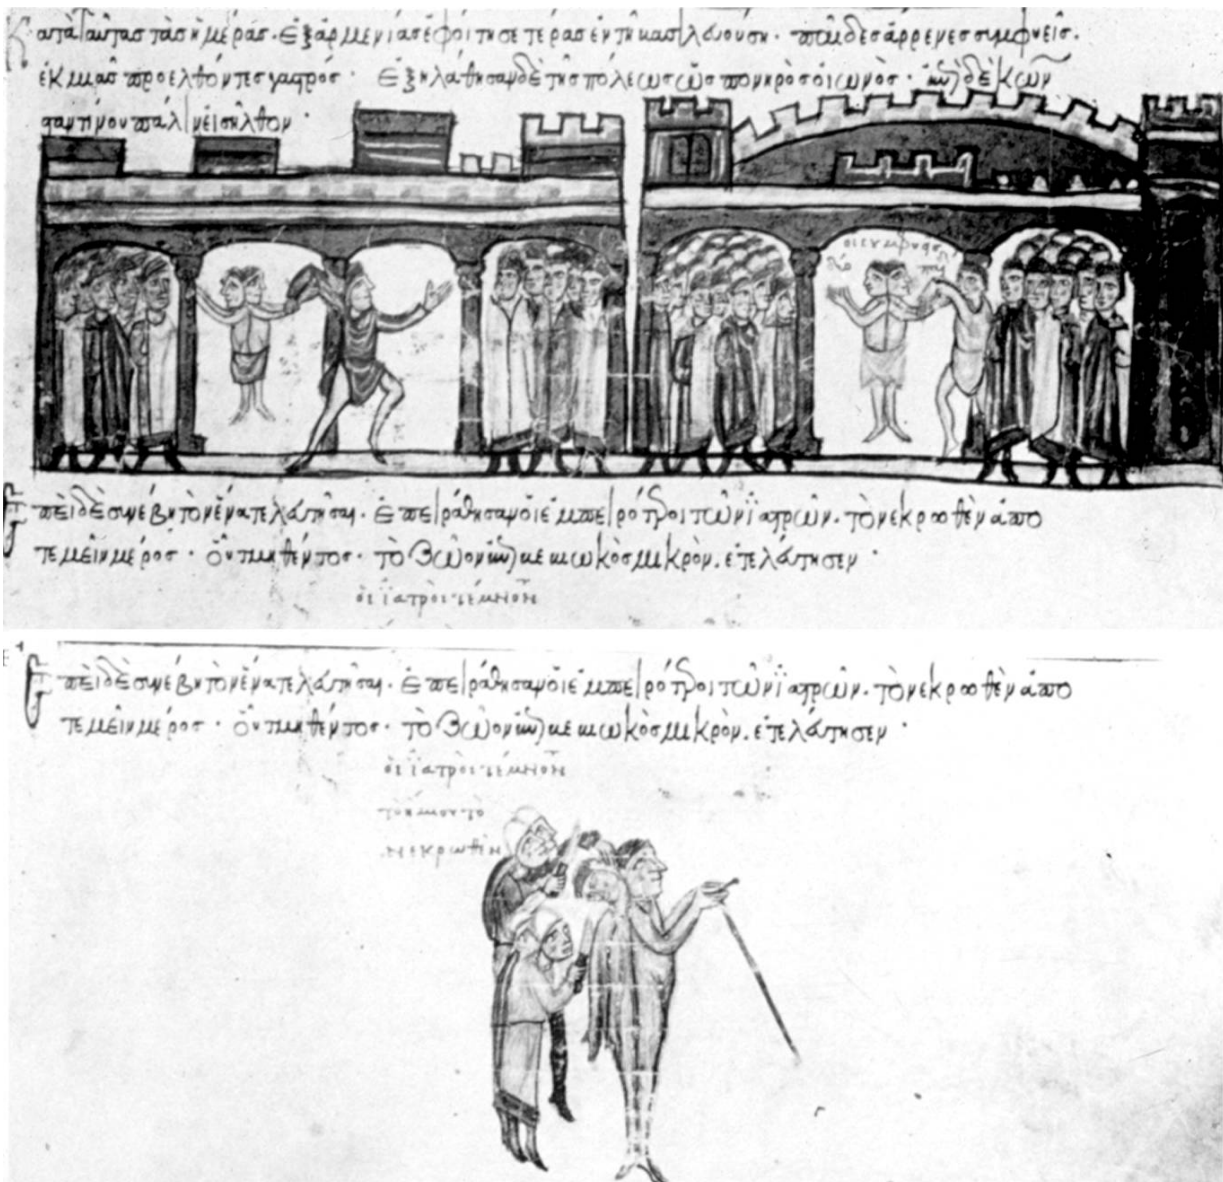 Κατὰ ταύτας τὰς ἡμέρας· ἐξ ἀρμενίας ἐφοίτησε τέρας ἐν τῆ βασιλευούση· παῖδες ἄρρενες συμφυεῖς·
ἐκ μιᾶς προελθόντες γαστρός· ἐξηλάθησαν δὲ τῆς πόλεως ὡς πονηρὸς οἰωνός· δὲ κων
σταντίνου πάλιν εἰσῆλθον·
οἱ συμφυεῖς
Ἐπεὶ δὲ συνέβη τὸν ἕνα τελευτῆσαι· ἐπειράθησαν οἱ ἐμπειρότεροι τῶν ἰατρῶν· τὸ νεκρωθὲν ἀπο
τεμεῖν μέρος· οὗ τμηθέντος· τὸ ζῶον μικρὸν· ἐτελεύτησεν·
οἱ ἰατροὶ τέμνον
Ἐπεὶ δὲ συνέβη τὸν ἕνα τελευτῆσαι· ἐπειράθησαν οἱ ἐμπειρότεροι τῶν ἰατρῶν· τὸ νεκρωθὲν ἀπο
τεμεῖν μέρος· οὗ τμηθέντος· τὸ ζῶον μικρὸν· ἐτελεύτησεν·
οἱ ἰατροὶ τέμνον
νεκρωθὲν